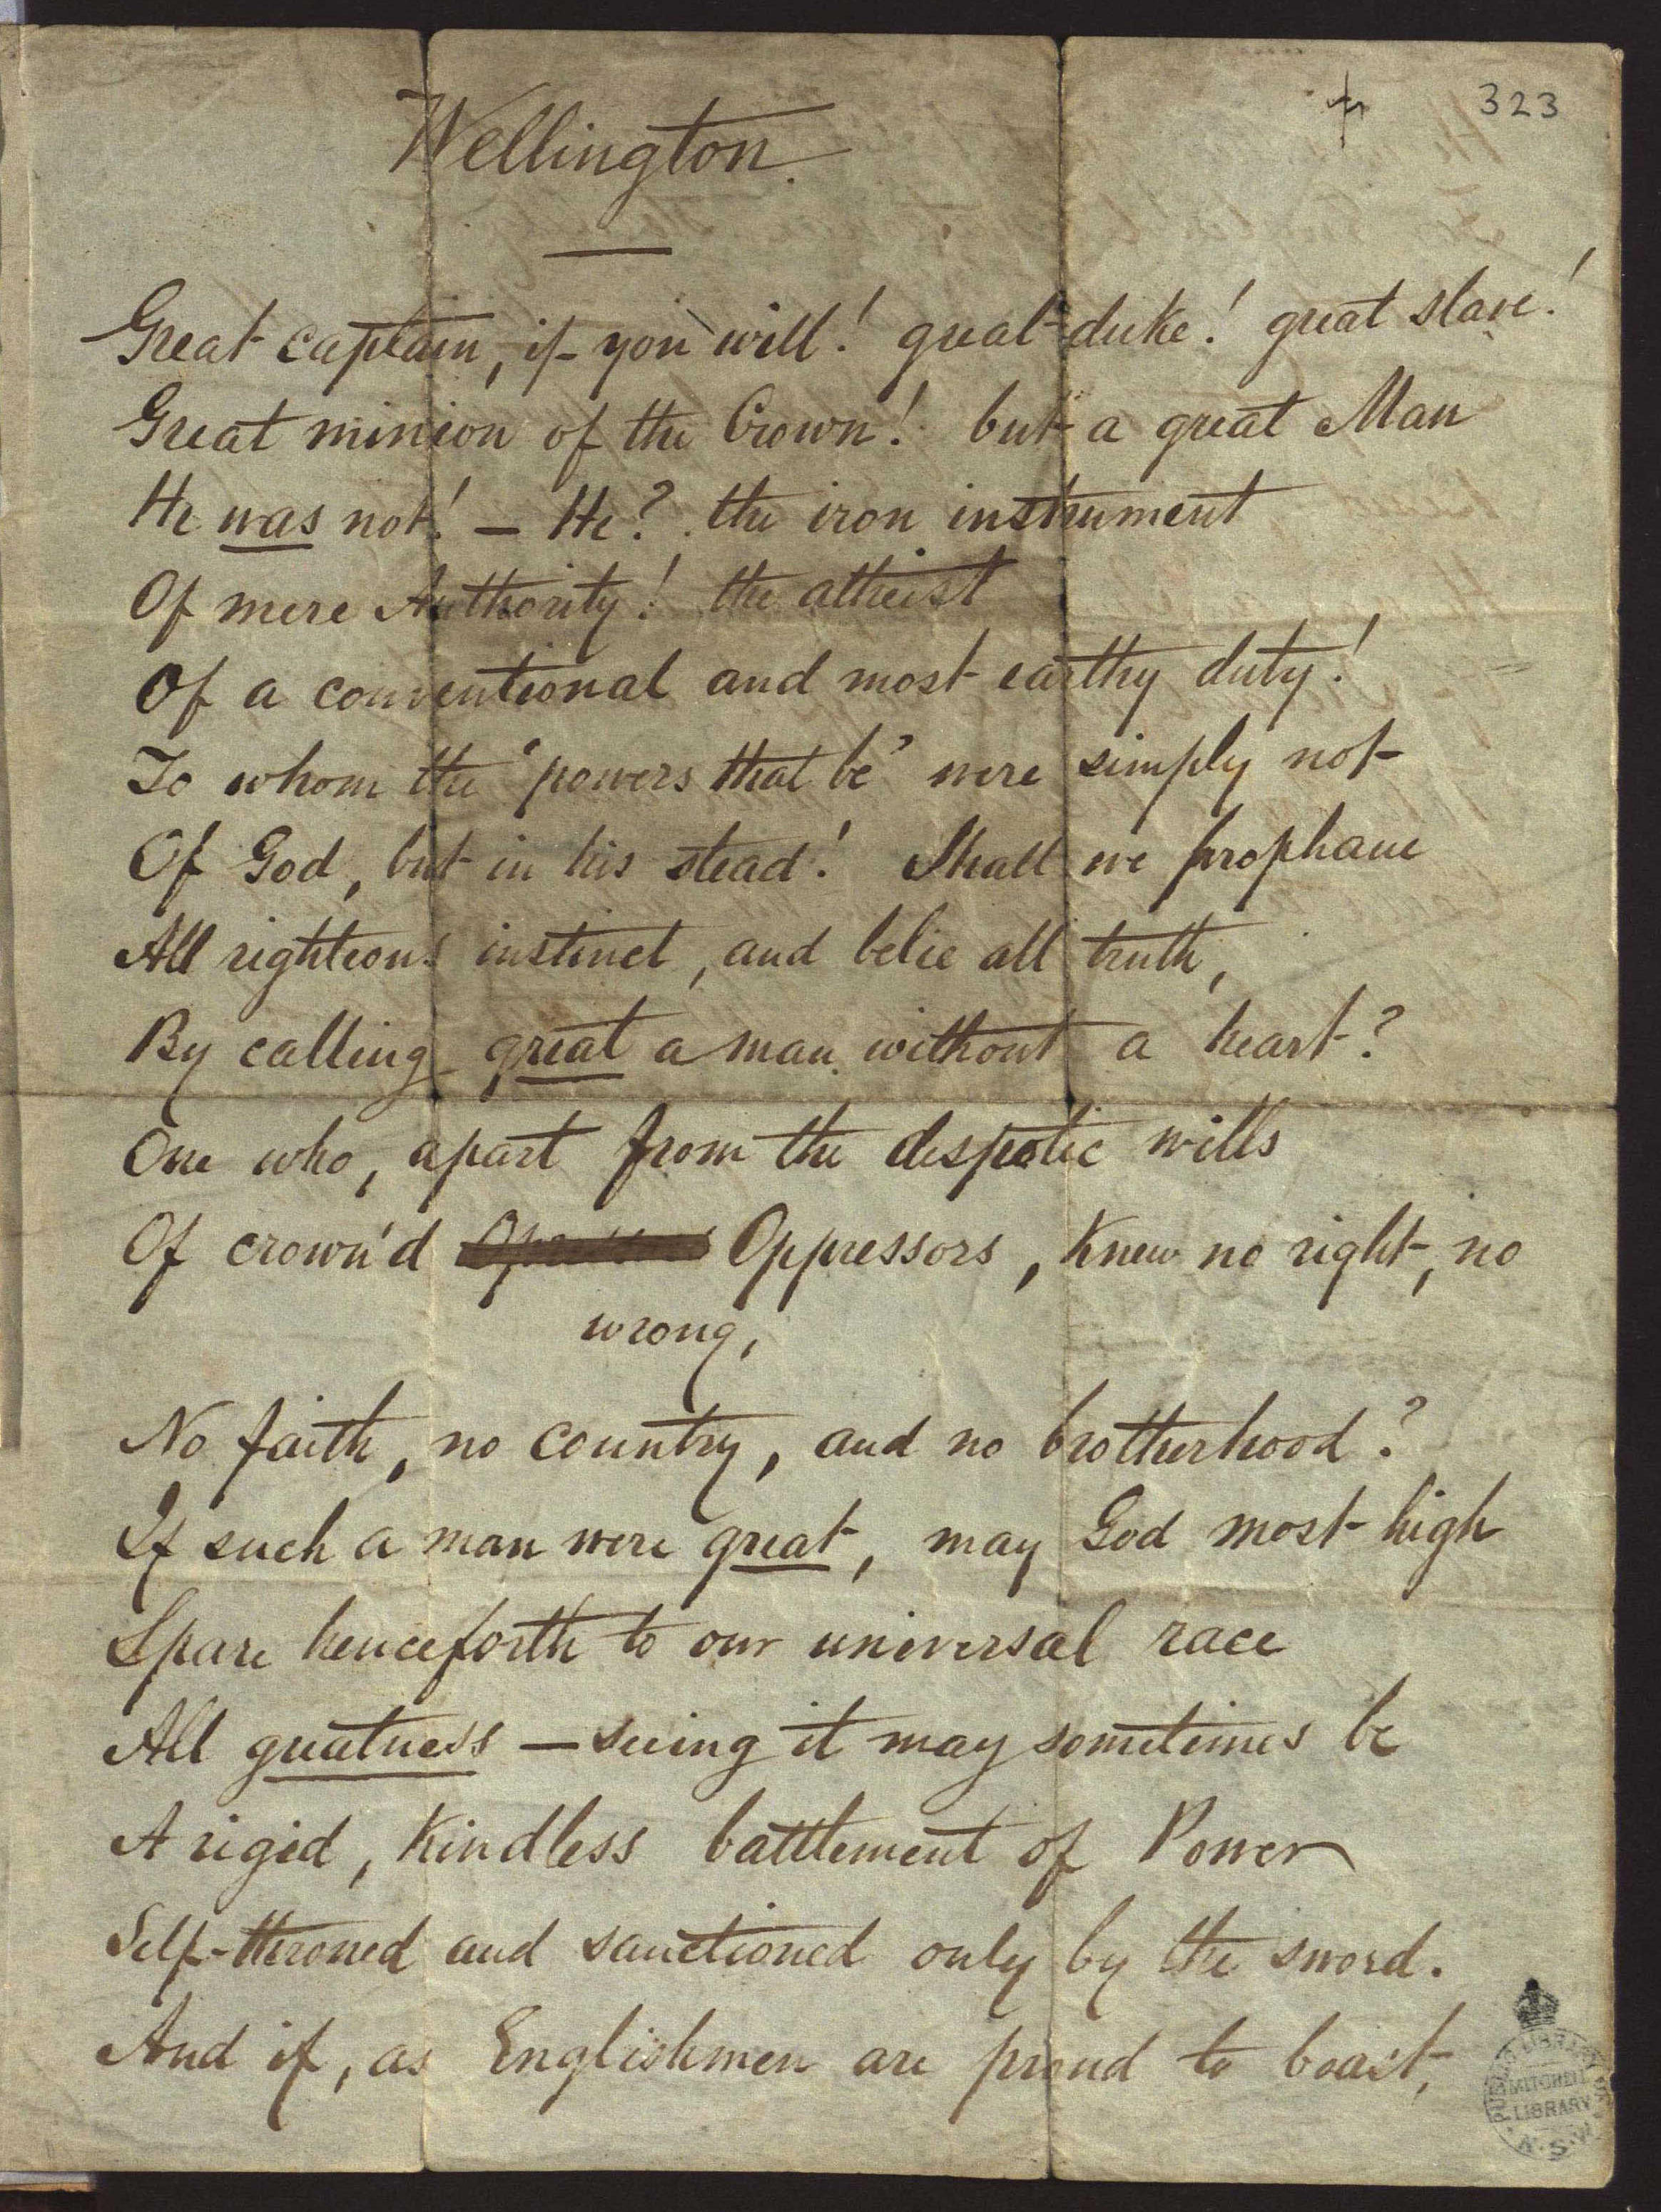 323
Wellington.
Great captain, if you will! great duke! great slave!
Great minion of the Crown! but a great Man
He was not! — He? the iron instrument
Of mere Authority! the atheist
Of a conventional and most earthy duty!
To whom the 'powers that be' were simply not
Of God, but in his stead! Shall we prophane
All righteous instinct, and belie all truth,
By calling great a man without a heart?
One who, apart from the despotic wills
Of crown'd Oppressors, knew no right, no
wrong,
No faith, no country, and no brotherhood?
If such a man were great, may God most high
Spare henceforth to our universal race
All greatness — seeing it may sometimes be
A rigid, kindless battlement of Power
Self-throned and sanctioned only by the sword.
And if, as Englishmen are proud to boast,
PUBLIC LIBRARY
MITCHELL
LIBRARY
N.S.W.